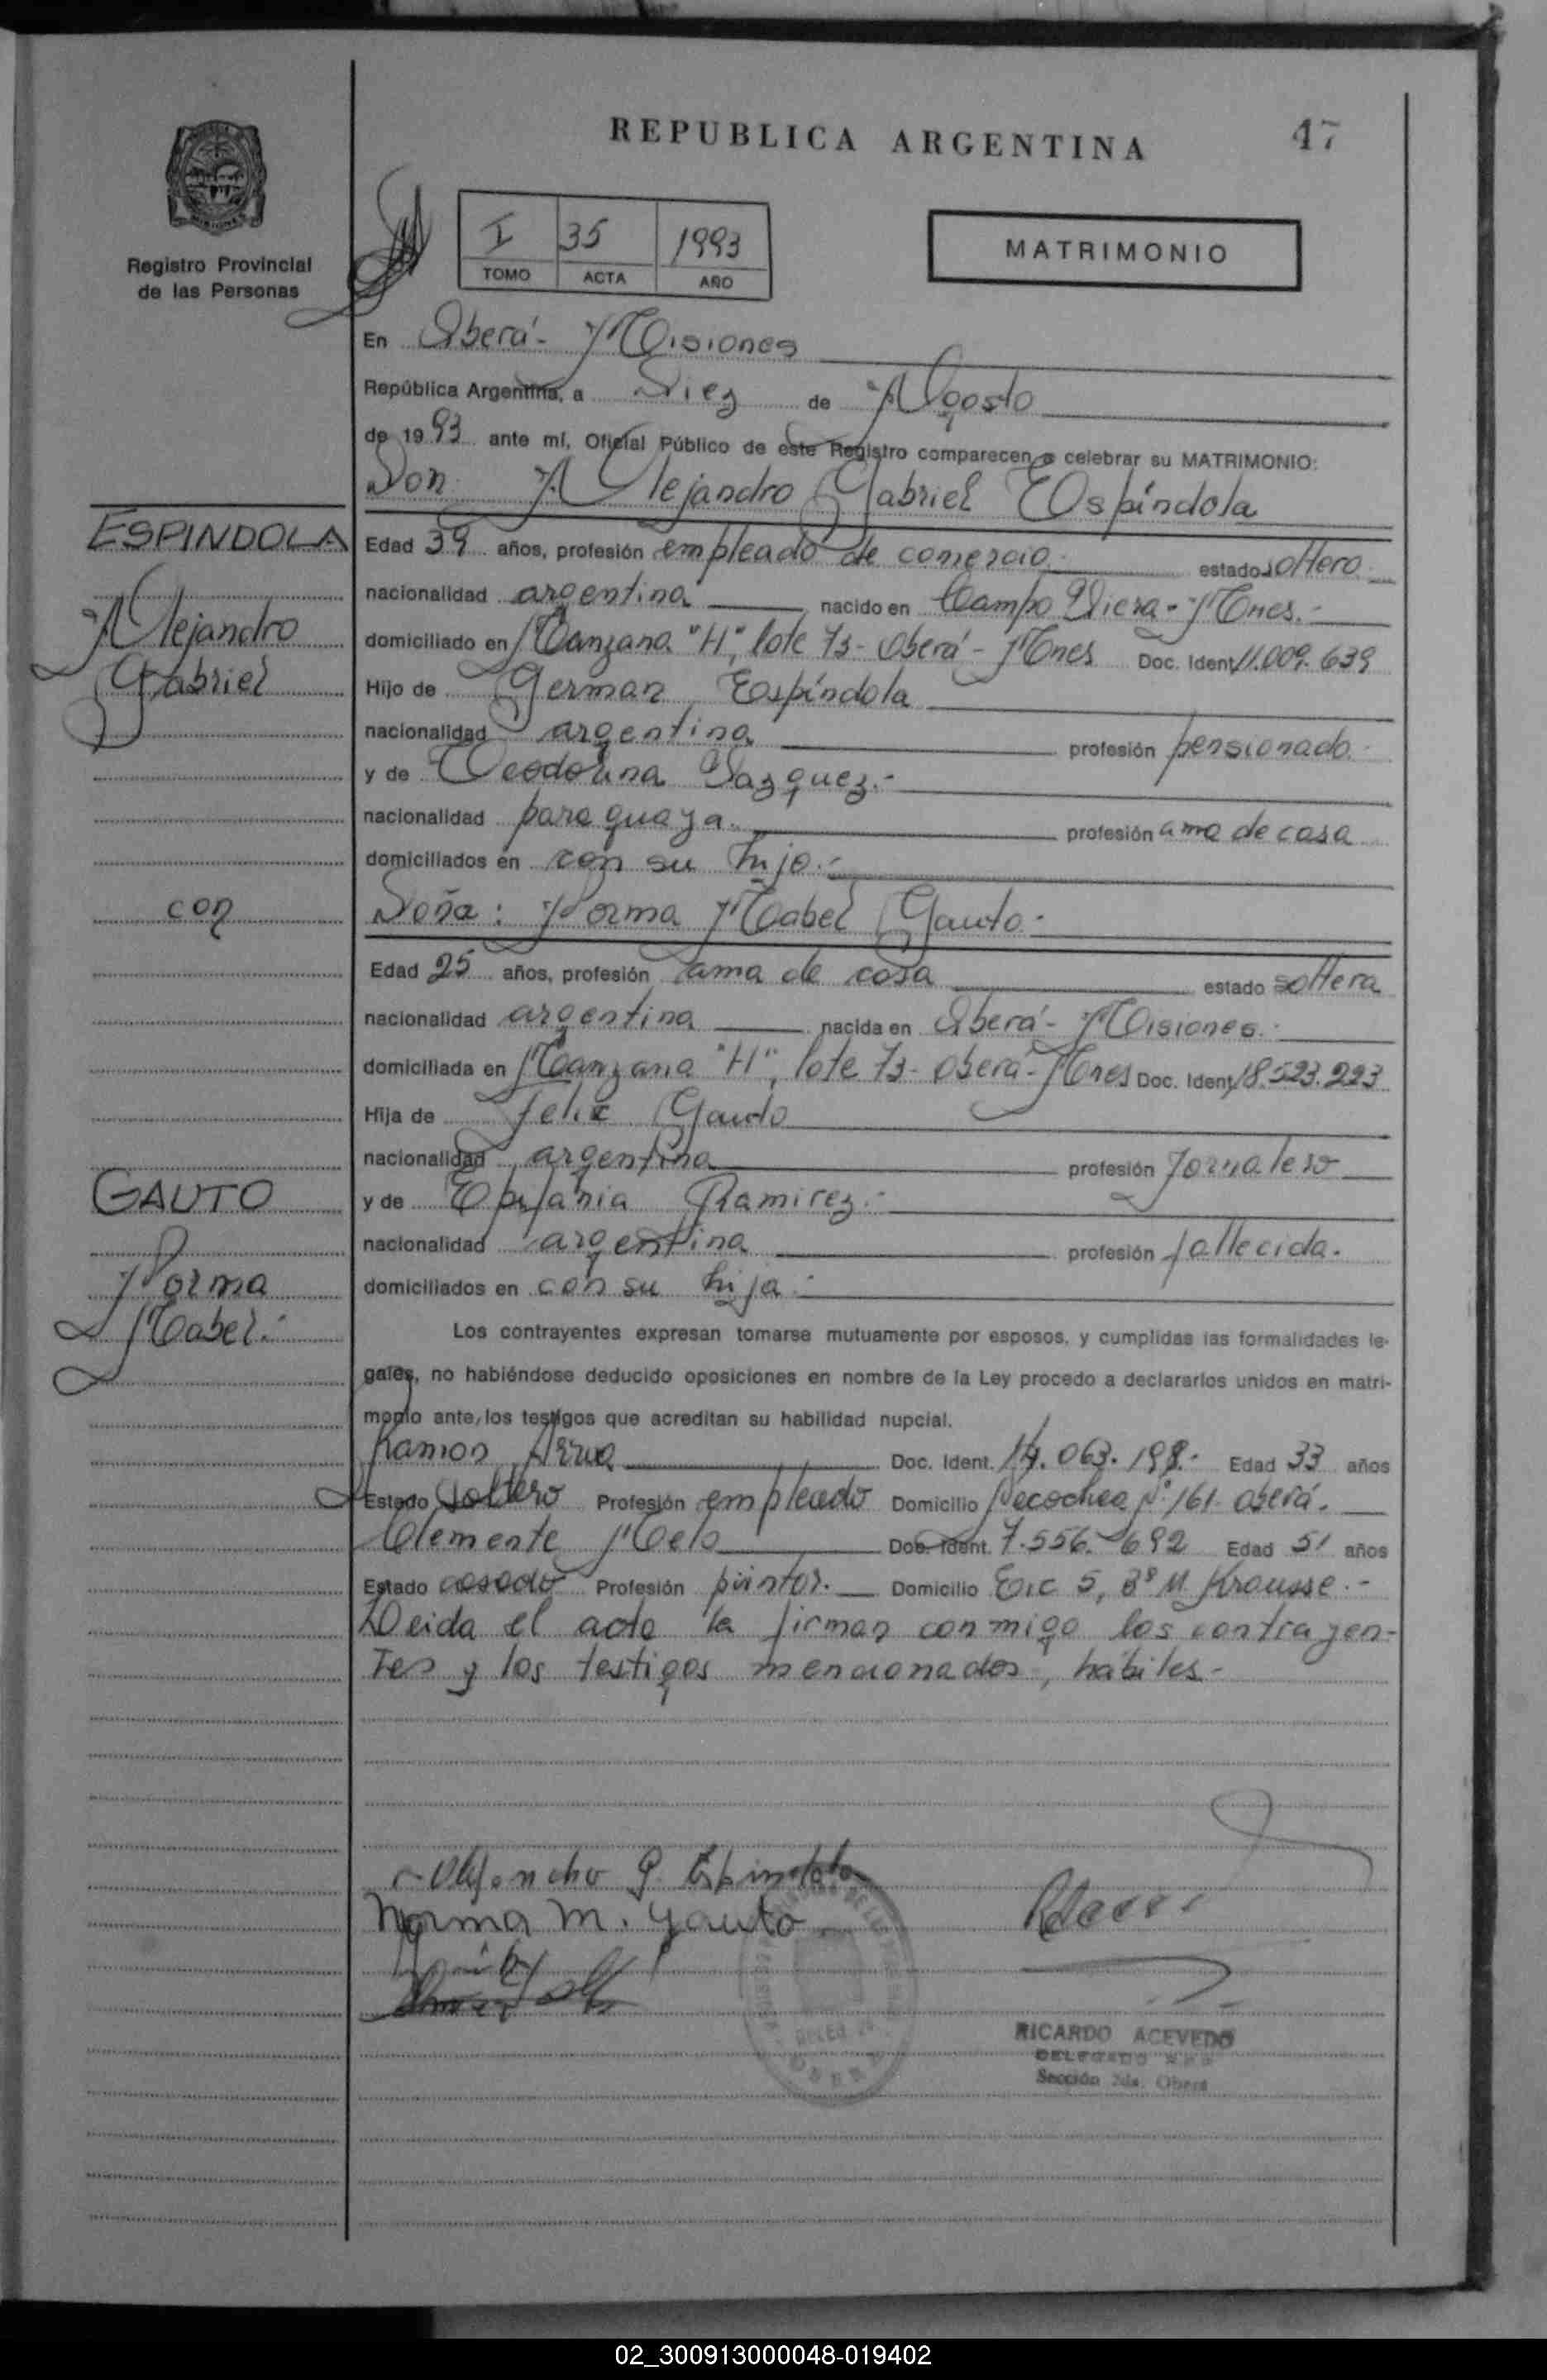 REPUBLICA ARGENTINA
47
Registro Provincial
de las Personas
I 35 1993
TOMO ACTA AÑO
MATRIMONIO
En Oberá - Misiones
República Argentina, a Diez de Agosto
de 1993 ante mí, Oficial Público de este Registro comparecen a celebrar su MATRIMONIO:
Don Alejandro Gabriel Espíndola
ESPINDOLA
Alejandro
Gabriel
con
GAUTO
Norma
Mabel.-
Edad 39 años, profesión empleado de comercio.- estado soltero.
nacionalidad argentina nacido en Campo Viera - Mnes.-
domiciliado en Manzana "H", lote 73 - Oberá - Mnes Doc. Ident. 11.009.639
Hijo de German Espíndola
nacionalidad argentina profesión pensionado.-
y de Teodolina Vazquez.-
nacionalidad paraguaya.- profesión ama de casa
domiciliados en con su hijo.-
Doña: Norma Mabel Gauto.-
Edad 25 años, profesión ama de casa estado soltera
nacionalidad argentina nacida en Oberá - Misiones.-
domiciliada en Manzana "H", lote 73 - Oberá - Mnes Doc. Ident. 18.523.223
Hija de Felix Gauto
nacionalidad argentina profesión Jornalero
y de Epifania Ramirez.-
nacionalidad argentina profesión fallecida.
domiciliados en con su hija.-
Los contrayentes expresan tomarse mutuamente por esposos, y cumplidas las formalidades le-
gales, no habiéndose deducido oposiciones en nombre de la Ley procedo a declararlos unidos en matri-
monio ante, los testigos que acreditan su habilidad nupcial.
Ramon Doc. Ident. 14.063.198.- Edad 33 años
Estado Soltero Profesión empleado Domicilio Necochea Nº 161 Oberá.
Clemente Melo Doc. Ident. 7.556.692 Edad 51 años
Estado casado Profesión pintor. Domicilio 5, Bº M. Krausse.-
Leida el acta la firman conmigo los contrayen-
tes y los testigos mencionados, hábiles.-
Alejandro G. Espindola
Norma M. Gauto
RICARDO ACEVEDO
DELEGADO
Sección Oberá
02_300913000048-019402